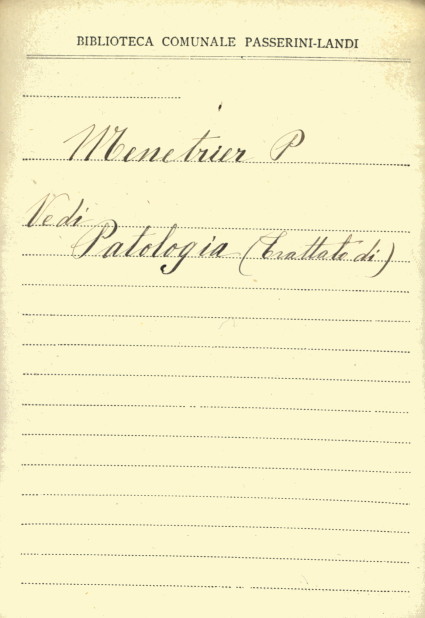 BIBLIOTECA COMUNALE PASSERINI-LANDI
Menetrier P
Vedi
Patologia (trattato di)